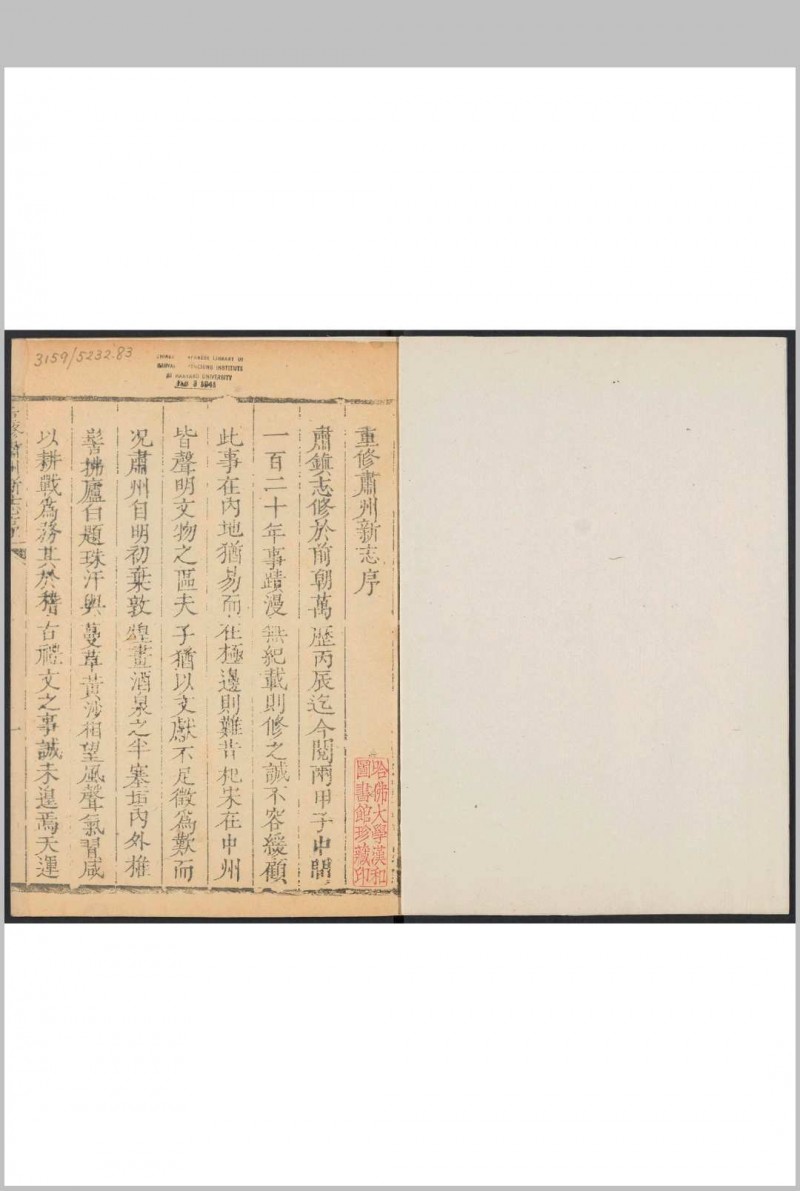 3159/5232.83
LIBRARY OF
INSTITUTE
HARVARD UNIVERSITY
重修肅州新志序
肅鎮志修於前朝萬歷丙辰迄今閱兩甲子中間
一百二十年事蹟漫無紀載則修之誠不容緩顧
此事在內地猶易而在極邊則難昔杞宋在中州
皆聲明文物之區夫子猶以文獻不足徵為歎而
況肅州自明初棄敦煌畫酒泉之半塞垣內外推
髻拂廬白題珠汗與蔓草黃沙相望風聲氣習咸
以耕戰為務其於稽古禮文之事誠未遑焉天運
修肅州新志序
一
哈佛大學漢和
圖書館珍藏印